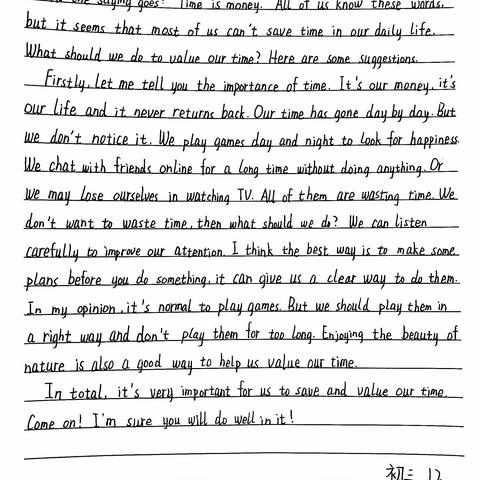 one saying goes: Time is money. All of us know these words,
but it seems that most of us can't save time in our daily life.
What should we do to value our time? Here are some suggestions.
Firstly, let me tell you the importance of time. It's our money, it's
our life and it never returns back. Our time has gone day by day. But
we don't notice it. We play games day and night to look for happiness.
We chat with friends online for a long time without doing anything. Or
we may lose ourselves in watching TV. All of them are wasting time. We
don't want to waste time, then what should we do? We can listen
carefully to improve our attention. I think the best way is to make some
plans before you do something, it can give us a clear way to do them.
In my opinion, it's normal to play games. But we should play them in
a right way and don't play them for too long. Enjoying the beauty of
nature is also a good way to help us value our time.
In total, it's very important for us to save and value our time.
Come on! I'm sure you will do well in it!
初三 12